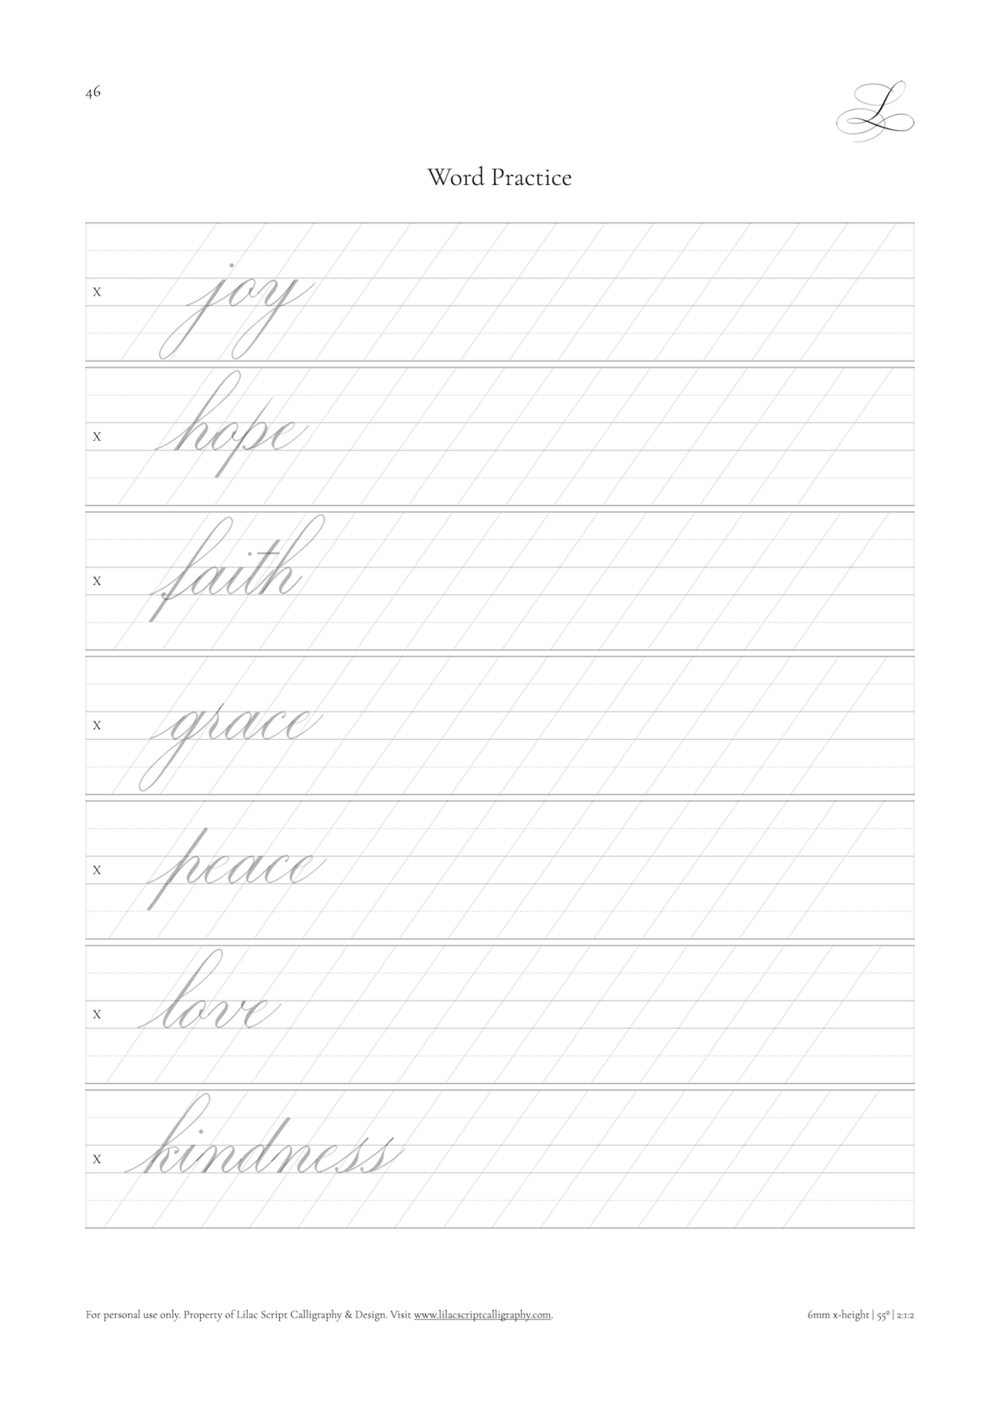 46
L
Word Practice
x joy
x hope
x faith
x grace
x peace
x love
x kindness
For personal use only. Property of Lilac Script Calligraphy & Design. Visit www.lilacscriptcalligraphy.com.
6mm x-height | 55º | 2:1:2